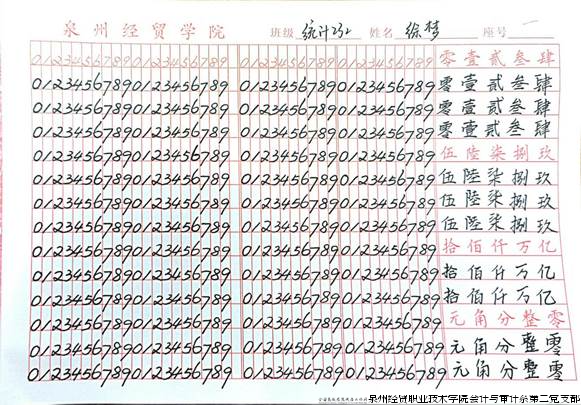 泉州经贸学院 班级 统计232 姓名 徐梦 座号 一
0123456789 0123456789 0123456789 0123456789 零壹贰叁肆
0123456789 0123456789 0123456789 0123456789 零壹贰叁肆
0123456789 0123456789 0123456789 0123456789 零壹贰叁肆
0123456789 0123456789 0123456789 0123456789 零壹贰叁肆
0123456789 0123456789 0123456789 0123456789 伍陆柒捌玖
0123456789 0123456789 0123456789 0123456789 伍陆柒捌玖
0123456789 0123456789 0123456789 0123456789 伍陆柒捌玖
0123456789 0123456789 0123456789 0123456789 伍陆柒捌玖
0123456789 0123456789 0123456789 0123456789 拾佰仟万亿
0123456789 0123456789 0123456789 0123456789 拾佰仟万亿
0123456789 0123456789 0123456789 0123456789 拾佰仟万亿
0123456789 0123456789 0123456789 0123456789 元角分整零
0123456789 0123456789 0123456789 0123456789 元角分整零
0123456789 0123456789 0123456789 0123456789 元角分整零
泉州经贸职业技术学院会计与审计系第二党支部